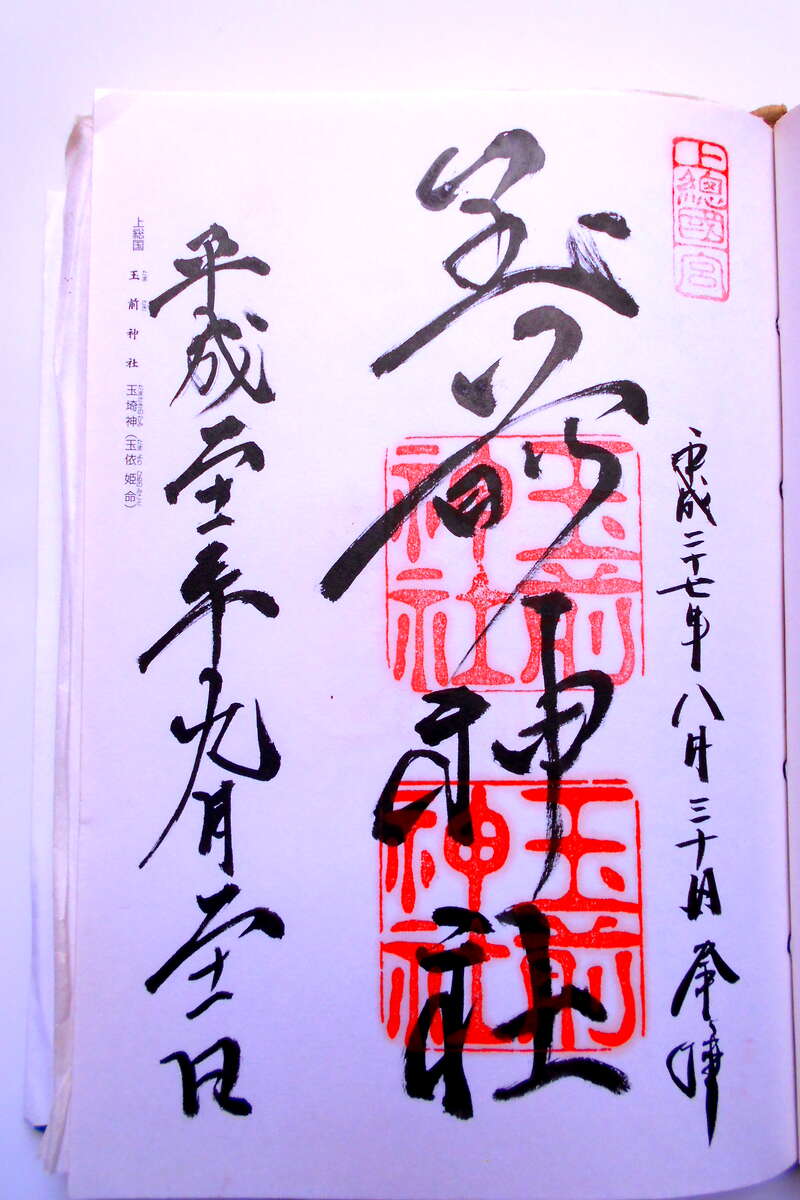 上總國一宮
平成二十七年八月三十日奉拝
玉前神社
玉前神社
玉前神社
平成二十一年九月二十一日
上総国 玉前神社 玉埼神(玉依姫命)